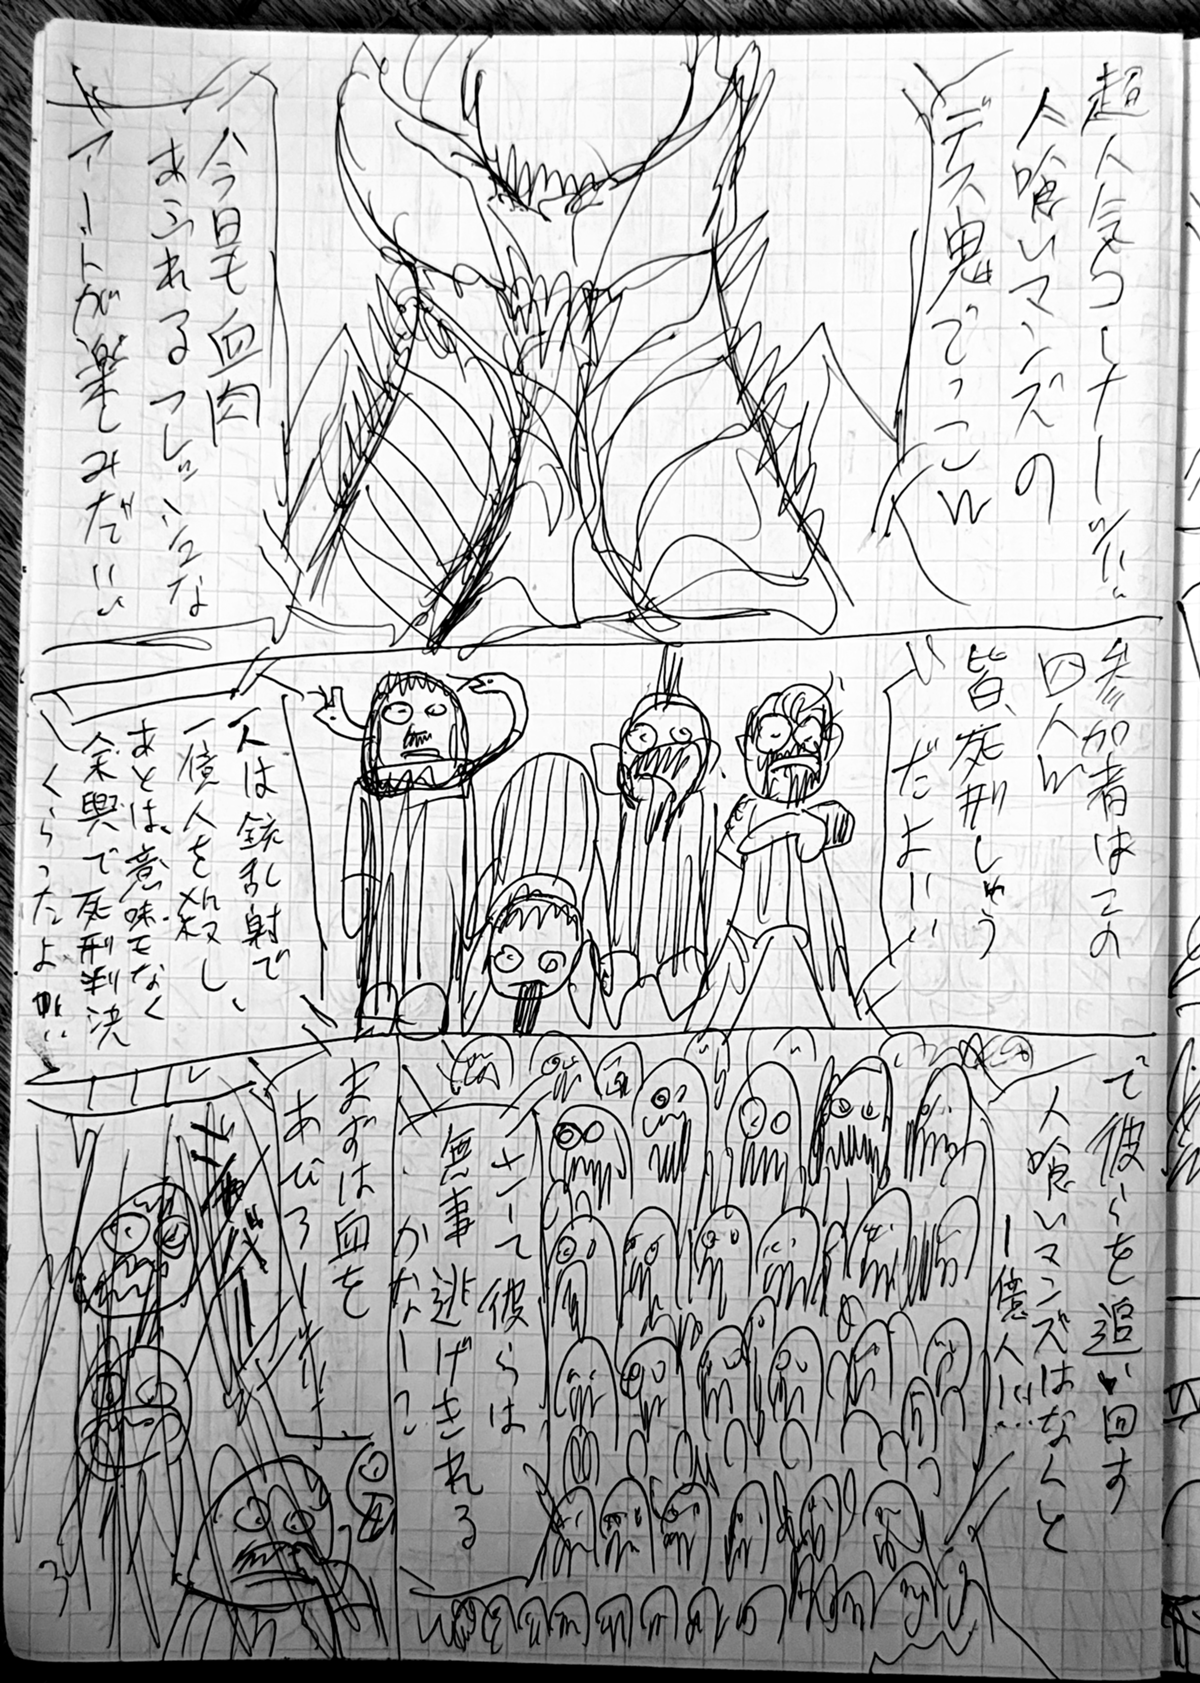 超人気コーナー!!!
人喰いマンズの
デス鬼ごっこw
今日も血肉
あふれるフレッシュな
アートが楽しみだい!!
参加者はこの
四人w
皆、死刑しゅう
だよいい
い
一人は銃乱射で
一億人を殺し、
あとは、意味もなく
余興で死刑判決
くらったよ!!!
で彼らを追い回す
人喰いマンズはなんと
一億人!!!
さーて彼らは
無事逃げきれる
かなー?
まずは血を
あびろー!!